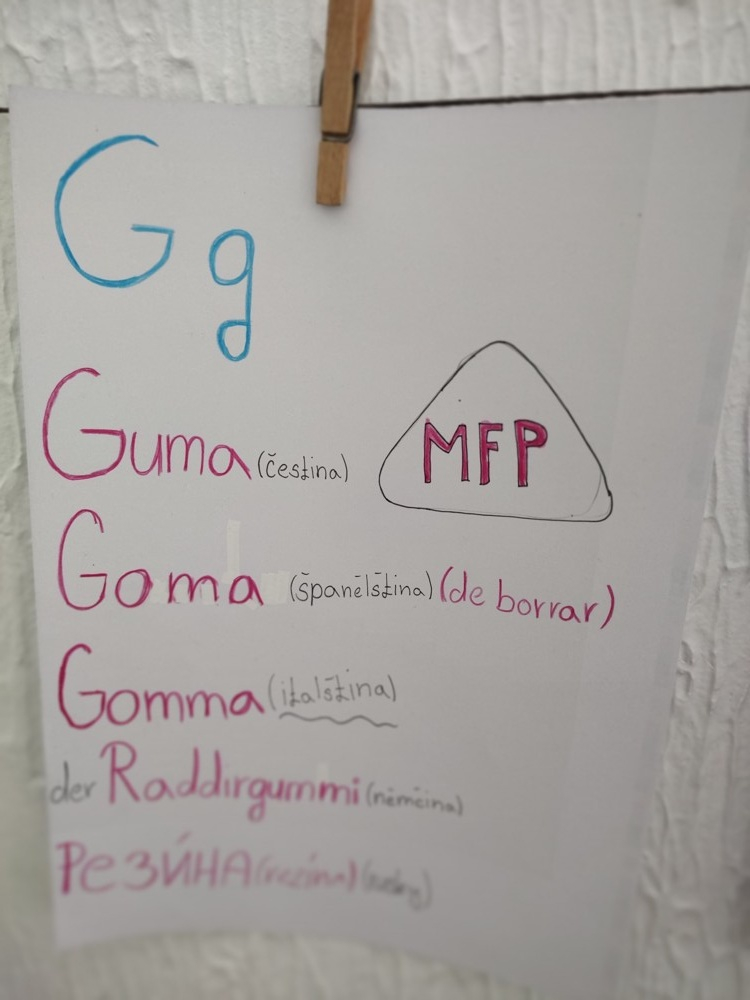 G g
Guma (čeština)
MFP
Goma (španělština) (de borrar)
Gomma (italština)
der Raddirgummi (němčina)
РЕЗИ́НА (rezína)